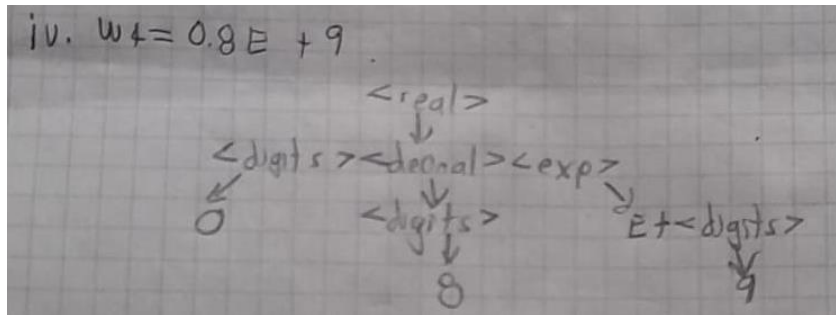 iv. W4= 0.8E +9
<real>
<digits><decimal><exp>
0 <digits> E+<digits>
8 9